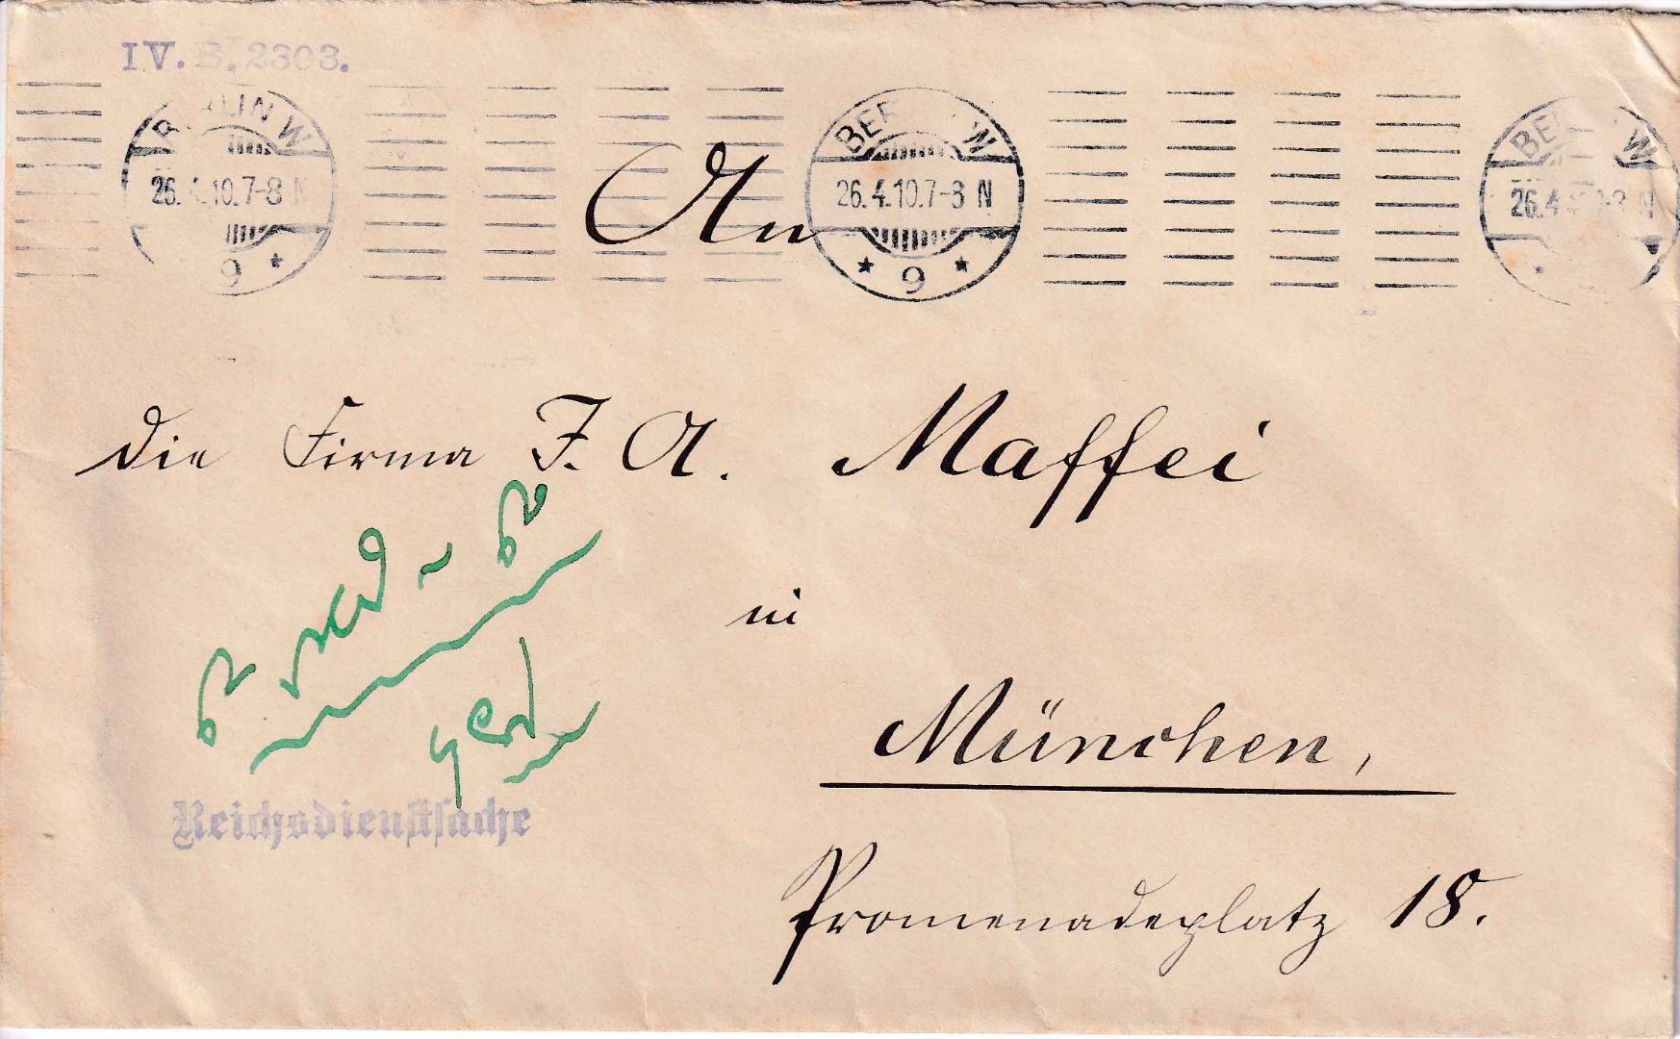 IV. B. 2303.
BERLIN W
26.4.10.7-8 N
9
BERLIN W
26.4.10.7-8 N
* 9 *
BERLIN W
26.4
An
die Firma J. A. Maffei
in
München,
Reichsdienstsache
Promenadeplatz 18.